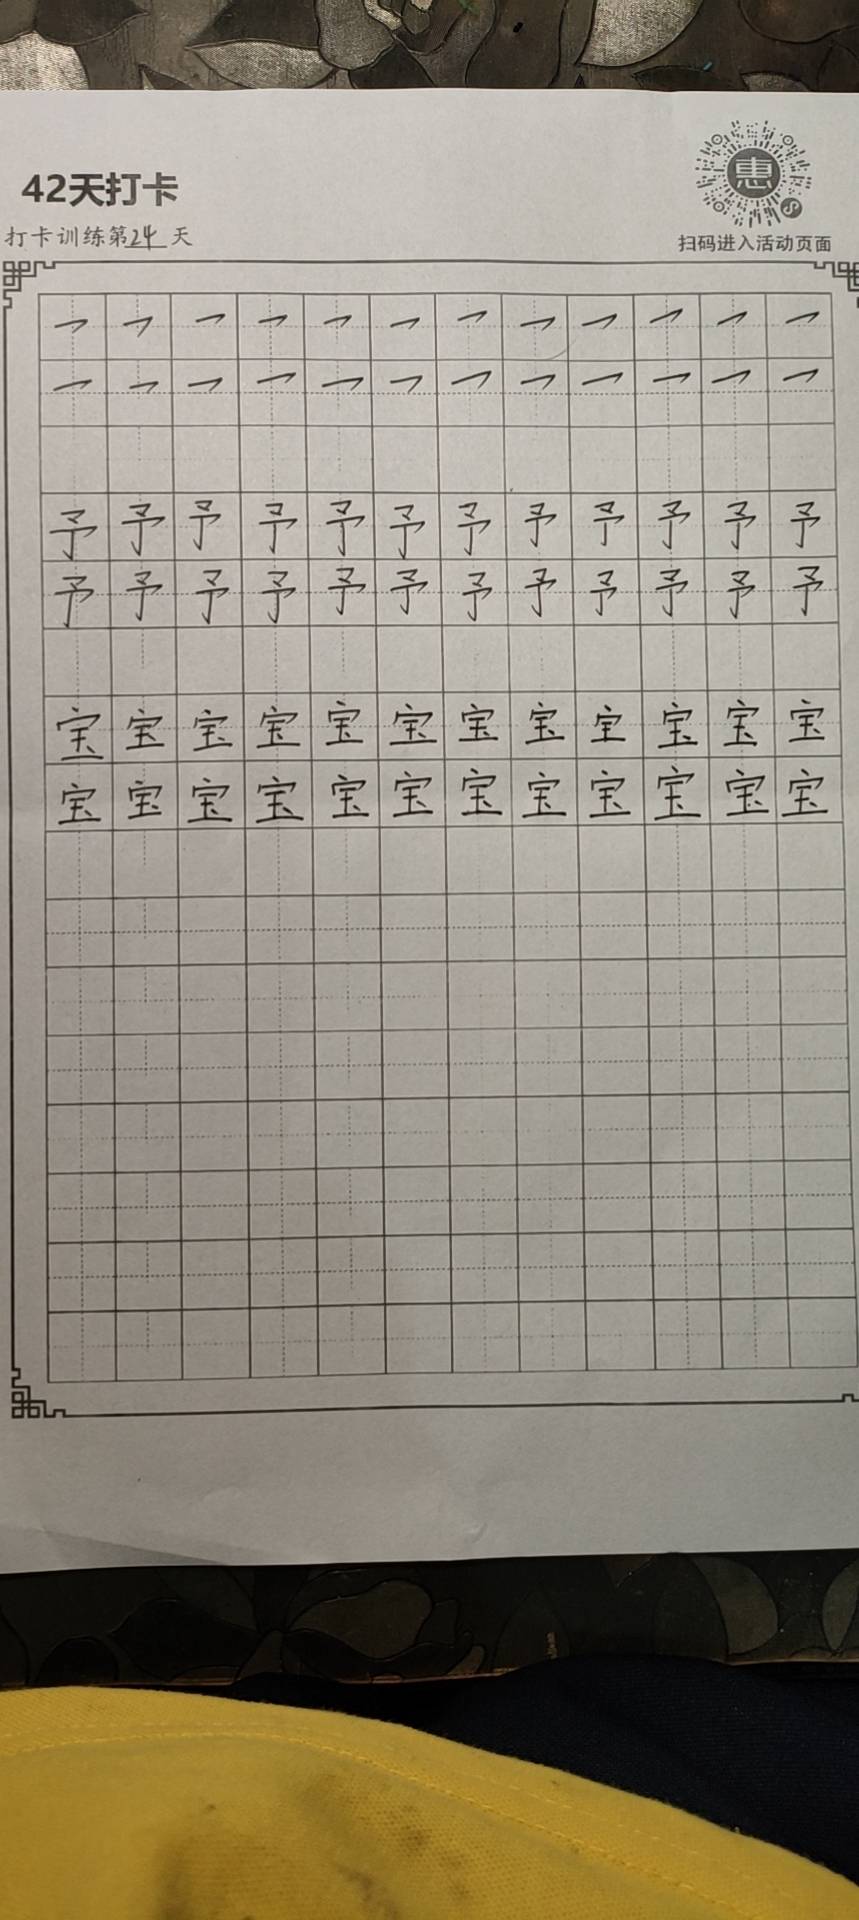 42天打卡
惠
打卡训练第24天
扫码进入活动页面
予予予予予予予予予予予予
予予予予予予予予予予予予
宝宝宝宝宝宝宝宝宝宝宝宝
宝宝宝宝宝宝宝宝宝宝宝宝